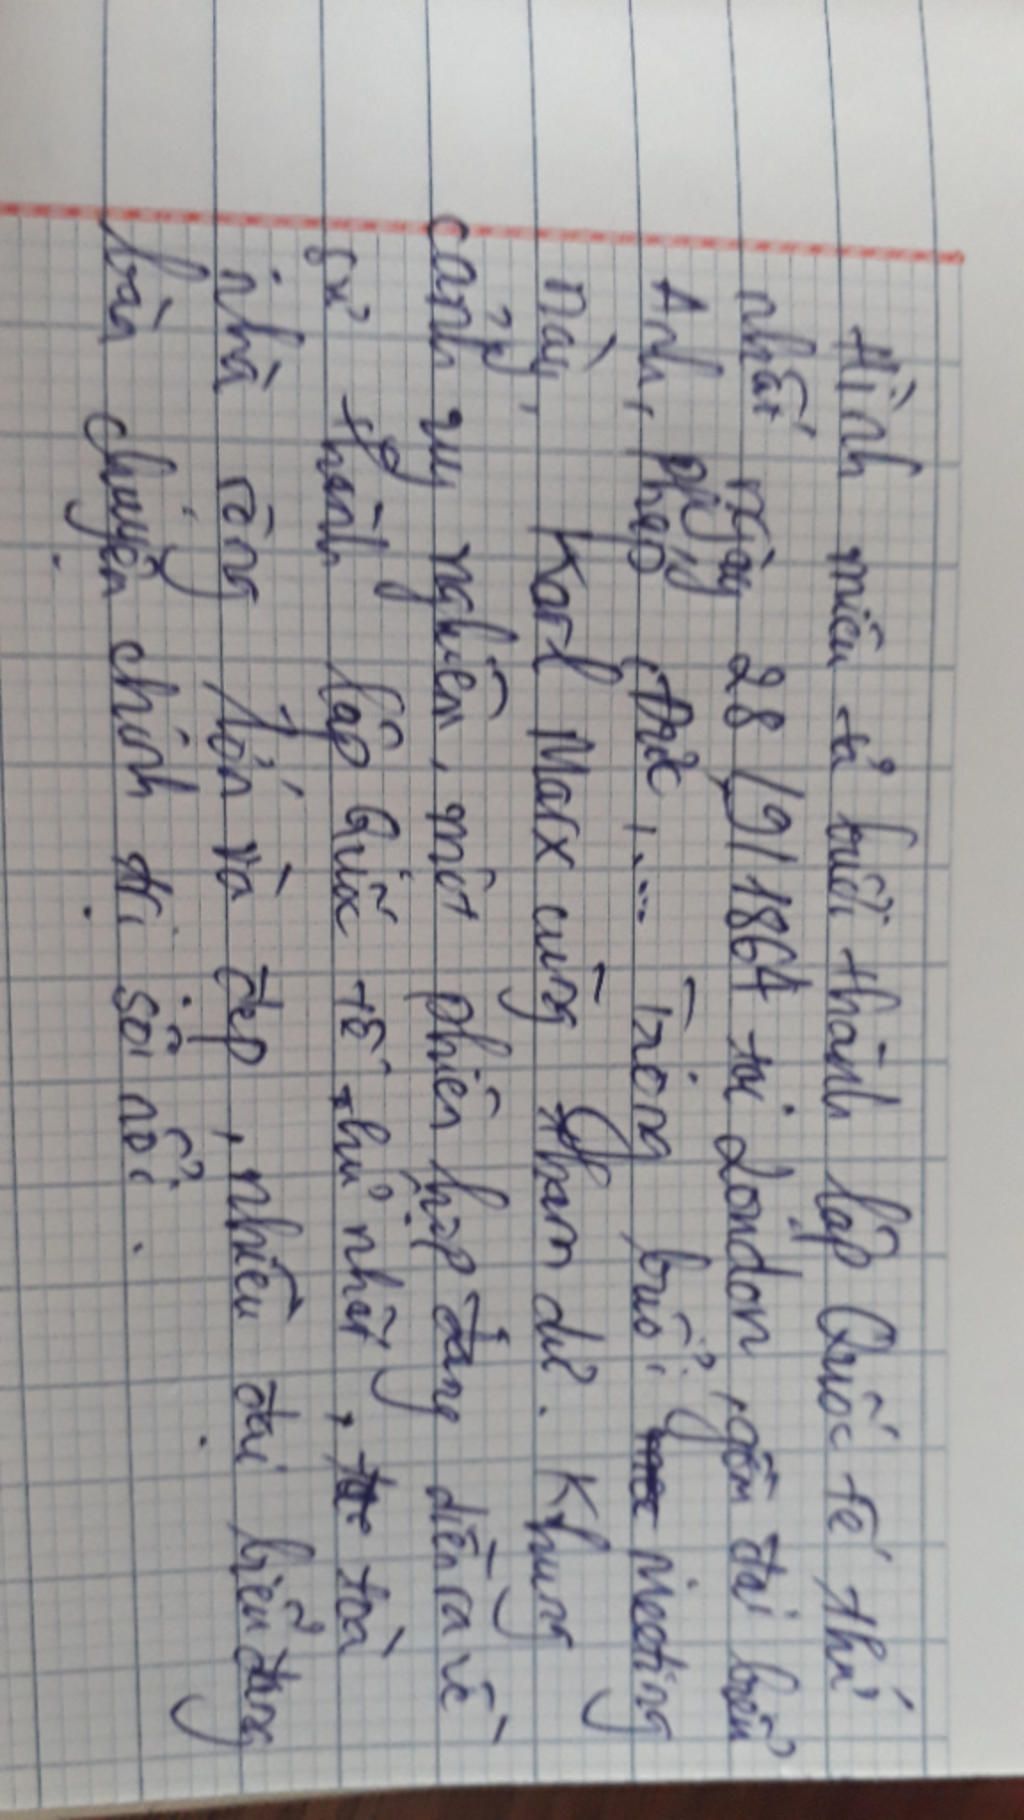 Hình miêu tả buổi thành lập Quốc tế thứ
nhất ngày 28/9/1864 tại London, gồm đại biểu
Anh, Pháp, Đức,... Trong buổi Meeting
này, Karl Marx cũng tham dự. Khung
cảnh uy nghiêm, một phiên họp đang diễn ra về
sự thành lập Quốc tế thứ nhất, toà
nhà rộng lớn và đẹp, nhiều đại biểu đang
bàn chuyện chính trị sôi nổi.